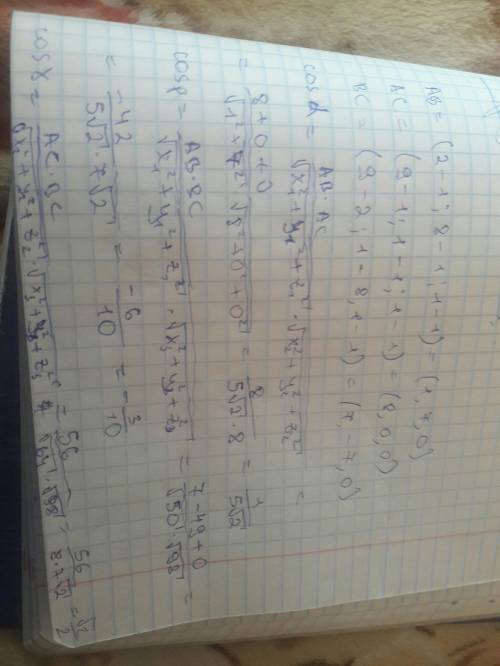 AB = (2-1; 8-1; 1-1) = (1, 7, 0)
AC = (9-1; 1-1; 1-1) = (8, 0, 0)
BC = (9-2; 1-8, 1-1) = (7, -7, 0)
cos α = AB·AC / √(x₁²+y₁²+z₁²) · √(x₂²+y₂²+z₂²) =
= 8+0+0 / √(1²+7²) √(8²+0²+0²) = 8 / 5√2·8 = 1 / 5√2
cos β = AB·BC / √(x₁²+y₁²+z₁²) · √(x₃²+y₃²+z₃²) = 7-49+0 / √50·√98 =
= -42 / 5√2·7√2 = -6/10 = -3/10
cos γ = AC·BC / √(x₂²+y₂²+z₂²) · √(x₃²+y₃²+z₃²) = 56 / √64·√98 = 56 / 8·7√2 = √2/2